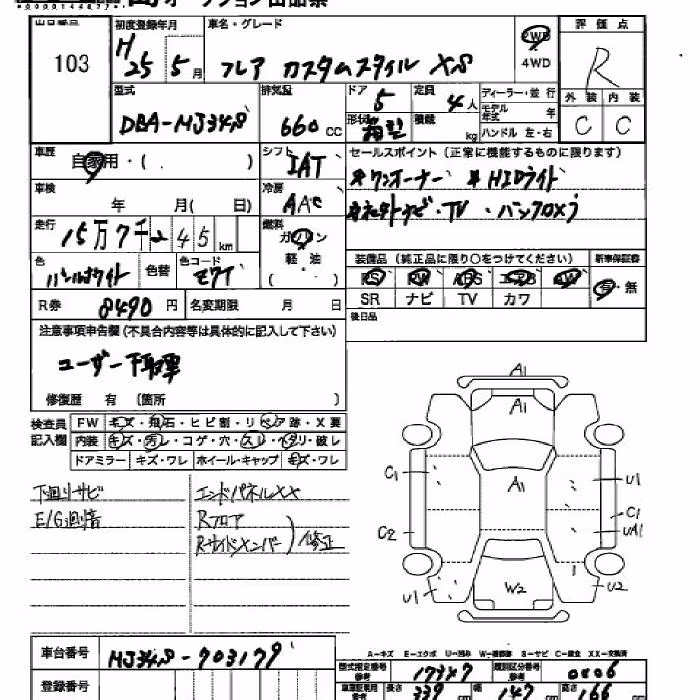 オークション出品票
出品番号 初度登録年月 車名・グレード 2WD 4WD 評価点
103 H25 5月 フレア カスタムスタイル XS R
外装 内装
C C
型式 排気量 ドア 定員 ディーラー・並行
DBA-MJ34S 660cc 5 4人 モデル年式 年
形状 箱型 積載 kg ハンドル 左・右
車歴 自家用・( ) シフト IAT セールスポイント(正常に機能するものに限ります)
*ワンオーナー *HIDライト
*社外ナビ・TV
車検 年 月( 日) 冷房 AAC
走行 15万7千245km 燃料 ガソリン 軽油 ( ・ )
色 パールホワイト 色替 色コード 装備品(純正品に限り○をつけてください) 新車保証書
PS PW ABS エアB AW 有・無
SR ナビ TV カワ
R券 8490円 名変期限 月 日 後日品
注意事項申告欄(不具合内容等は具体的に記入して下さい)
ユーザー下取車
修復歴 有 〔箇所 〕
検査員記入欄 FW キズ・飛石・ヒビ割・リペア跡・X要
内装 キズ・汚レ・コゲ・穴・スレ・ヘタリ・破レ
ドアミラー キズ・ワレ ホイール・キャップ キズ・ワレ
下回リサビ エンドパネルXX
E/G異音 Rフロア
Rサイドメンバー 修正
A1
A1
C1 A1 U1
C1
C2 UA1
U1 W2 U2
A-キズ E-エクボ U-凹み W-補修跡 S-サビ C-腐食 XX-交換済
車台番号 MJ34S-703179
型式指定番号 参考 17347 類別区分番号 参考 0006
登録番号 長さ 339cm 幅 147cm 高さ 166